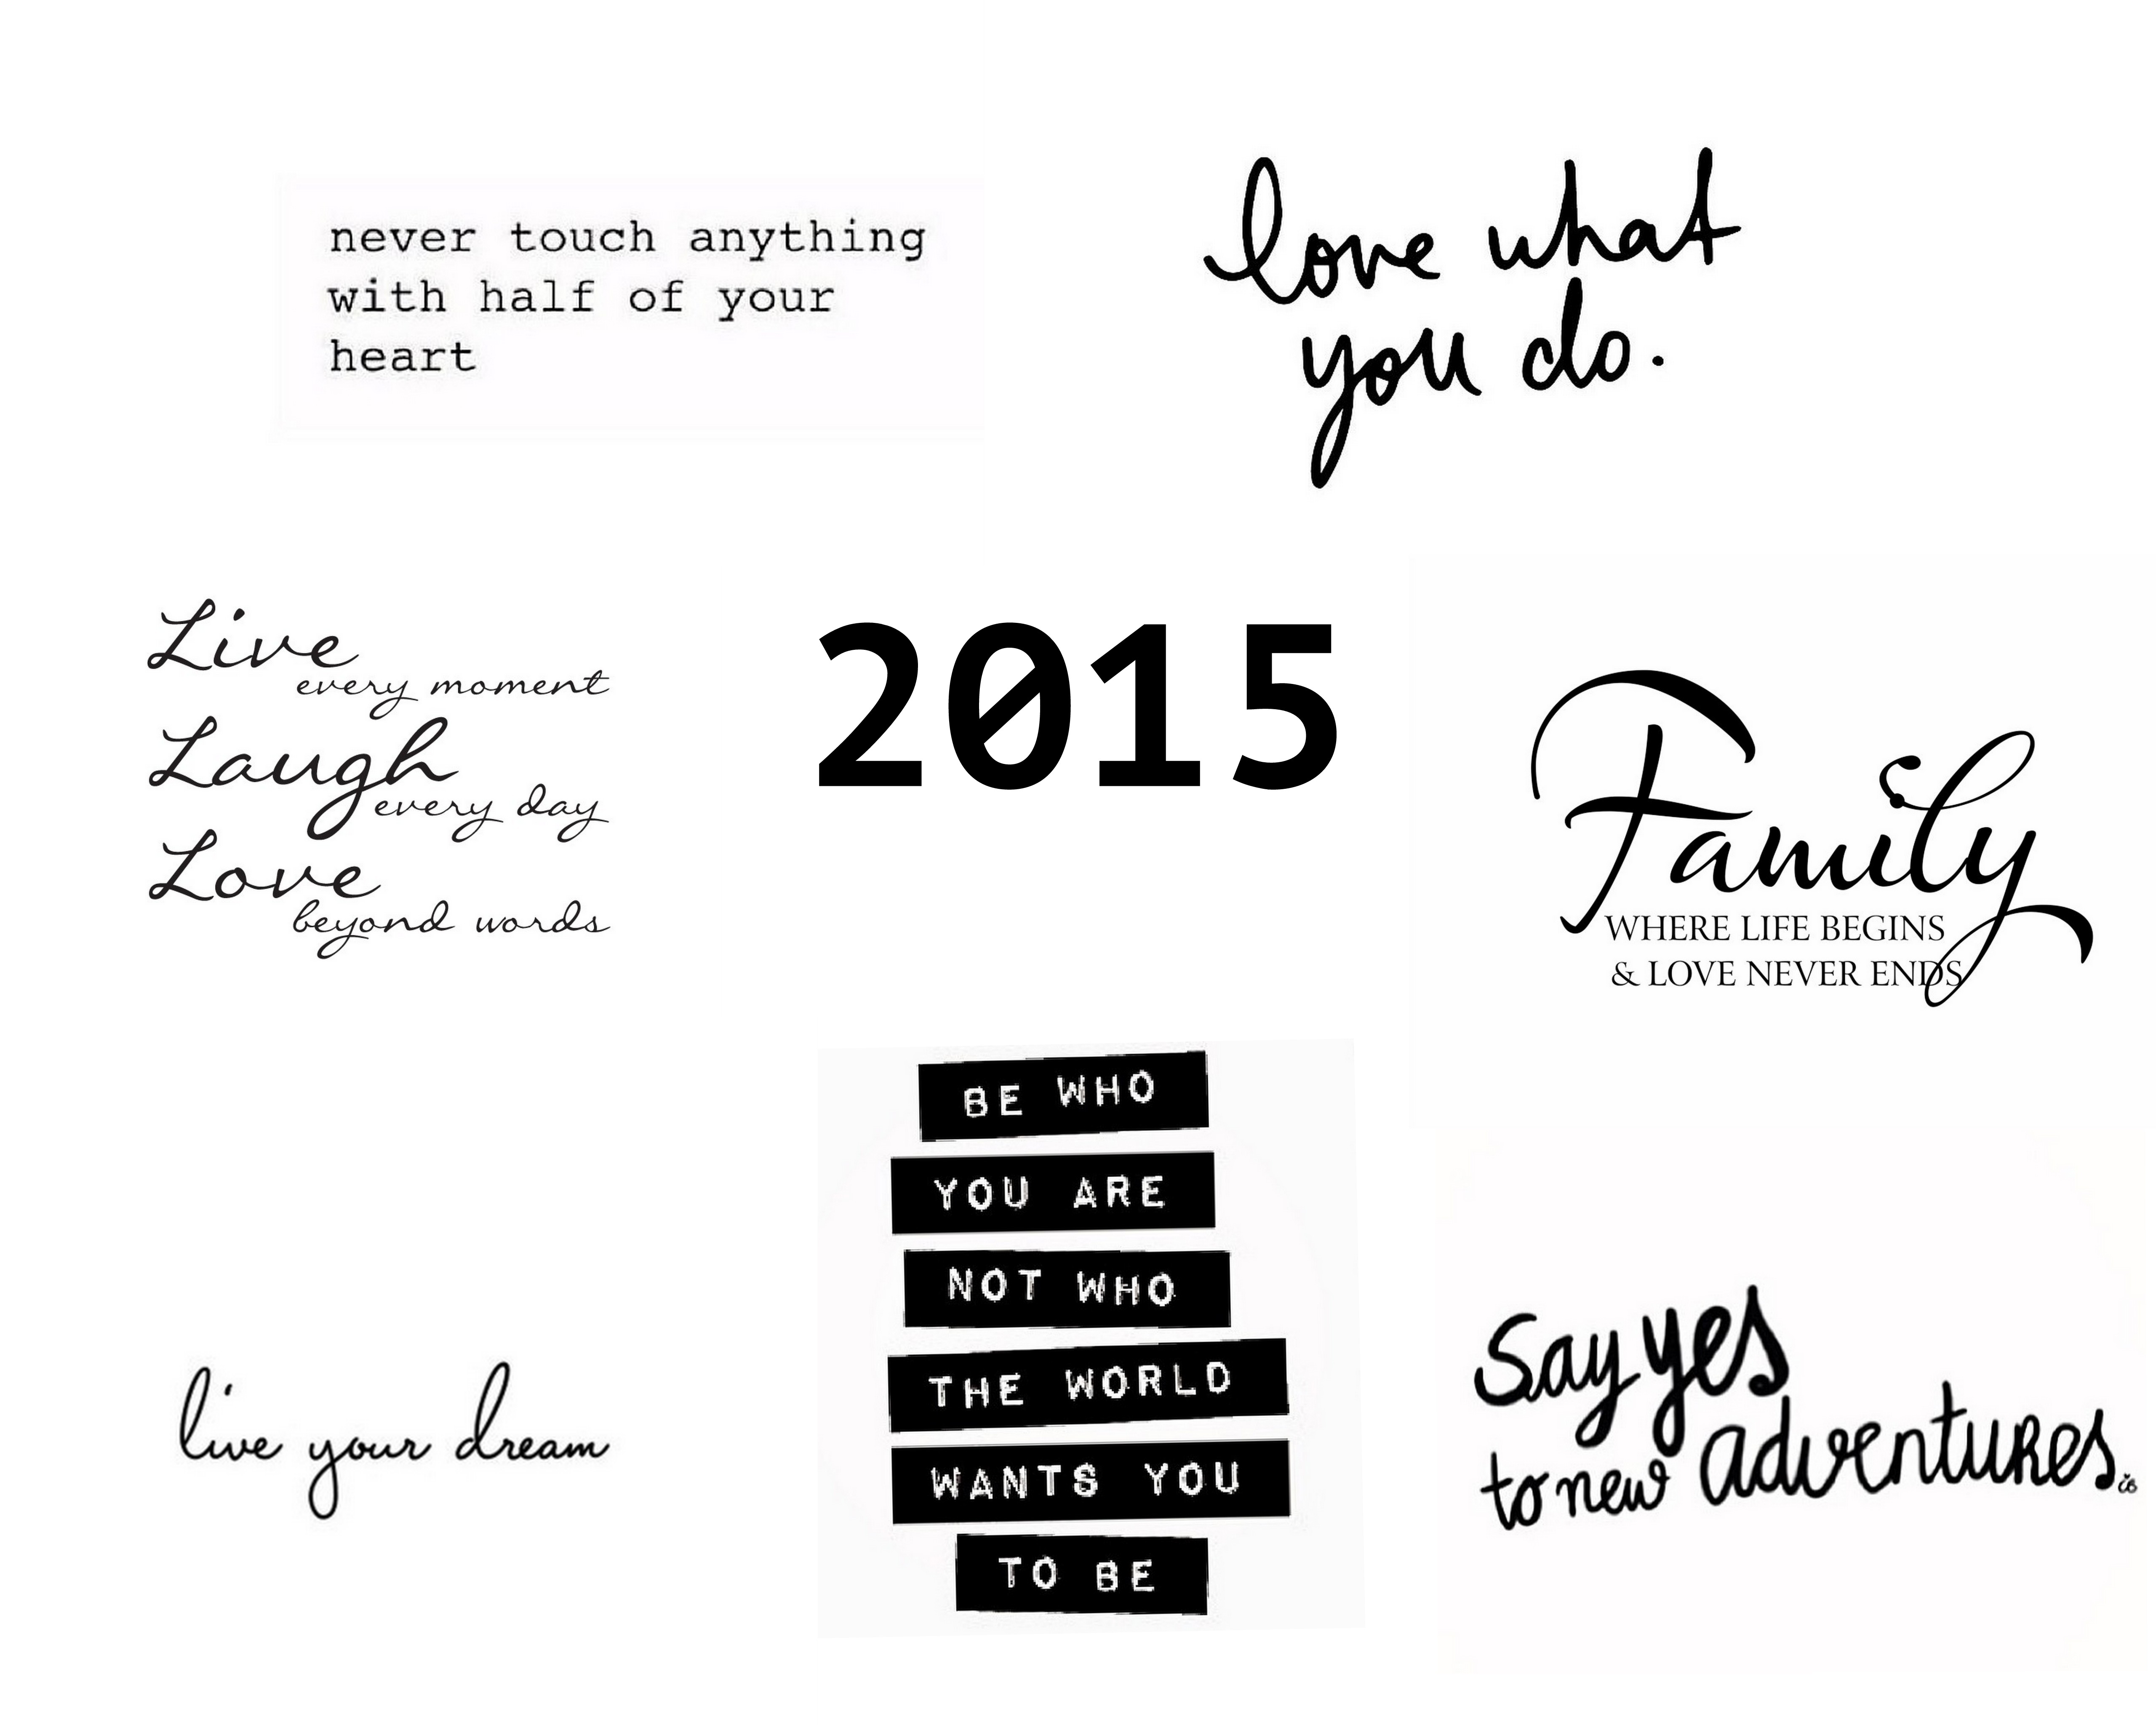 never touch anything
with half of your
heart
love what
you do.
Live
every moment
Laugh
every day
Love
beyond words
2015
Family
WHERE LIFE BEGINS
& LOVE NEVER ENDS
BE WHO
YOU ARE
NOT WHO
THE WORLD
WANTS YOU
TO BE
live your dream
say yes
to new adventures.